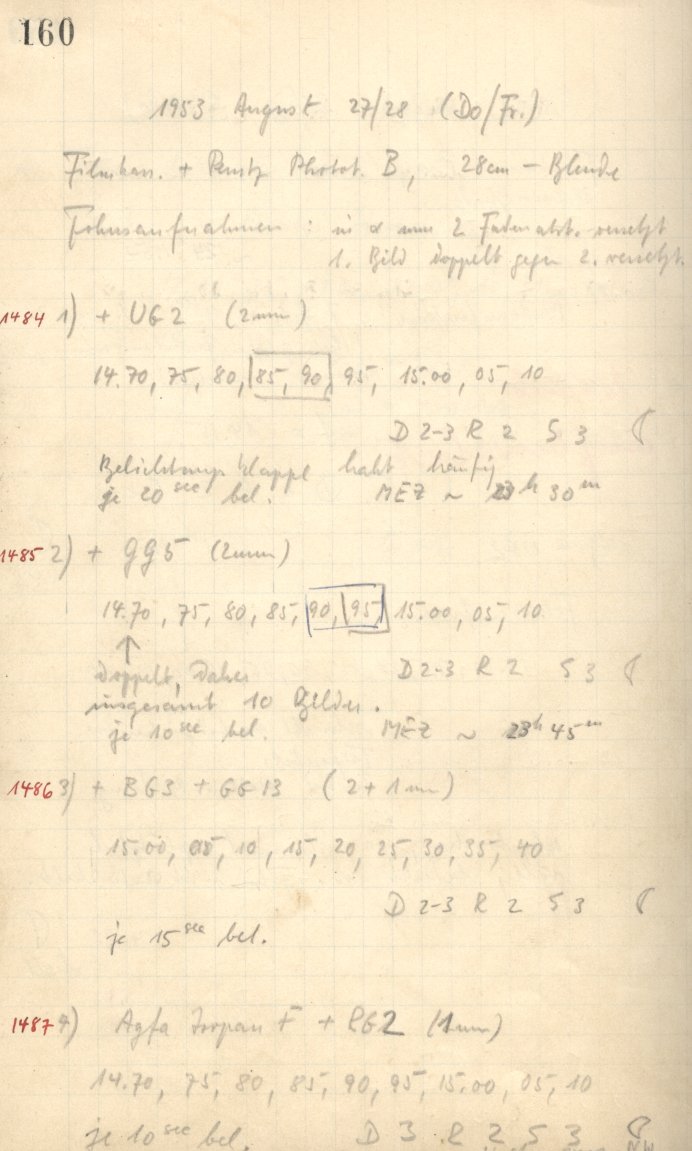 160
1953 August 27/28 (Do/Fr.)
Filmkass. + Perutz Phototh. B, 28cm - Blende
Fokusaufnahmen : in α um 2 Fadenabst. versetzt
1. Bild doppelt gegen 2. versetzt.
1484 1) + UG2 (2mm)
14.70, 75, 80, 85, 90, 95, 15.00, 05, 10
D 2-3 R 2 S 3
Belichtungsklappe hakt häufig
je 20 sec bel. MEZ ~ 23h 30m
1485 2) + GG5 (2mm)
14.70, 75, 80, 85, 90, 95, 15.00, 05, 10
↑
doppelt, daher D 2-3 R 2 S 3
insgesamt 10 Bilder.
je 10 sec bel. MEZ ~ 23h 45m
1486 3) + BG3 + GG13 (2+1mm)
15.00, 05, 10, 15, 20, 25, 30, 35, 40
D 2-3 R 2 S 3
je 15 sec bel.
1487 4) Agfa Isopan F + RG2 (1mm)
14.70, 75, 80, 85, 90, 95, 15.00, 05, 10
je 10 sec bel. D 3 R 2 S 3